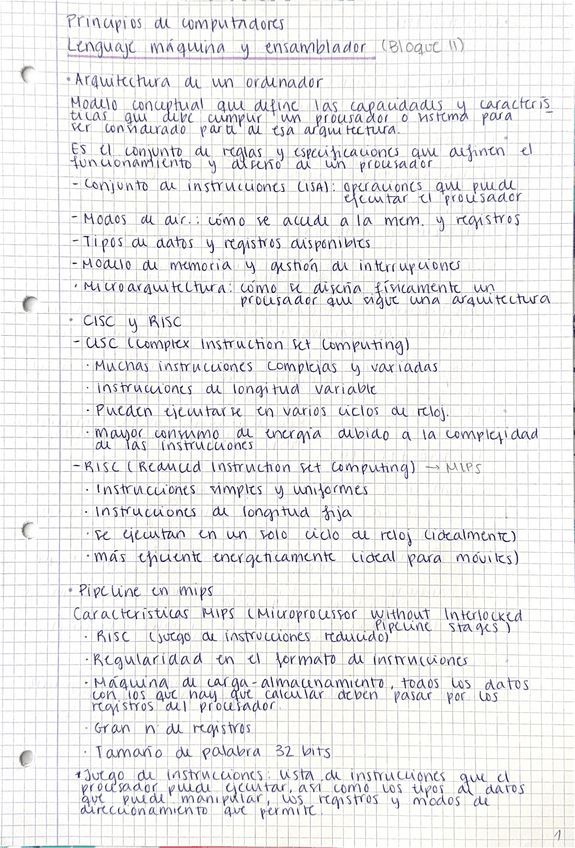 Principios de computadores
Lenguaje máquina y ensamblador (Bloque II)
· Arquitectura de un ordenador
Modelo conceptual que define las capacidades y caracterís-
ticas que debe cumplir un procesador o sistema para
ser considerado parte de esa arquitectura.
Es el conjunto de reglas y especificaciones que definen el
funcionamiento y diseño de un procesador
- Conjunto de instrucciones (ISA): operaciones que puede
ejecutar el procesador
- Modos de dir.: cómo se accede a la mem. y registros
- Tipos de datos y registros disponibles
- Modelo de memoria y gestión de interrupciones
· Microarquitectura: cómo se diseña físicamente un
procesador que sigue una arquitectura
· CISC y RISC
- CISC (Complex Instruction Set Computing)
· Muchas instrucciones complejas y variadas
· Instrucciones de longitud variable
· Pueden ejecutarse en varios ciclos de reloj.
· Mayor consumo de energía debido a la complejidad
de las instrucciones
- RISC (Reduced Instruction Set Computing) → MIPS
· Instrucciones simples y uniformes
· Instrucciones de longitud fija
· Se ejecutan en un solo ciclo de reloj (idealmente)
· más eficiente energeticamente (ideal para móviles)
· Pipeline en mips
Características MIPS (Microprocessor without Interlocked
Pipeline stages)
· RISC (juego de instrucciones reducido)
· Regularidad en el formato de instrucciones
· Máquina de carga-almacenamiento, todos los datos
con los que hay que calcular deben pasar por los
registros del procesador.
· Gran nº de registros
· Tamaño de palabra 32 bits
*Juego de instrucciones: lista de instrucciones que el
procesador puede ejecutar, así como los tipos de datos
que puede manipular, los registros y modos de
direccionamiento que permite.
1